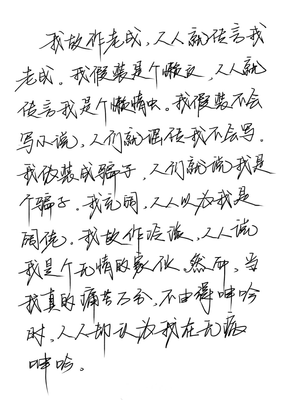 我故作老成，人人就传言我
老成。我假装是个懒汉，人人就
传言我是个懒惰虫。我假装不会
写小说，人们就谣传我不会写。
我伪装成骗子，人们就说我是
个骗子。我充阔，人人以为我是
阔佬。我故作冷淡，人人说
我是个无情的家伙。然而，当
我真的痛苦万分，不由得呻吟
时，人人却认为我在无病
呻吟。